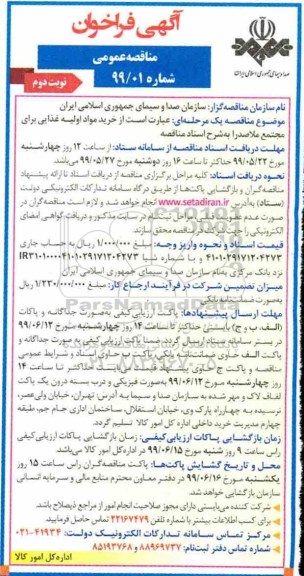 آگهی فراخوان
مناقصه عمومی
شماره ۹۹/۰۱
نوبت دوم
صدا و سیمای جمهوری اسلامی ایران
نام سازمان مناقصه‌گزار: سازمان صدا و سیمای جمهوری اسلامی ایران
موضوع مناقصه یک مرحله‌ای: عبارت است از خرید مواد اولیه غذایی برای
مجتمع ملاصدرا به‌شرح اسناد مناقصه
مهلت دریافت اسناد مناقصه از سامانه ستاد: از ساعت ۱۲ روز چهارشنبه
مورخ ۹۹/۰۵/۲۲ حداکثر تا ساعت ۱۶ روز دوشنبه مورخ ۹۹/۰۵/۲۷ می‌باشد.
نحوه دریافت اسناد: کلیه مراحل برگزاری مناقصه از دریافت اسناد تا ارائه پیشنهاد
مناقصه‌گران و بازگشایی پاکت‌ها از طریق درگاه سامانه تدارکات الکترونیکی دولت
(ستاد) به آدرس www.setadiran.ir انجام خواهد شد و لازم است مناقصه‌گران در
صورت عدم عضویت قبلی مراحل ثبت‌نام در سایت مذکور و دریافت گواهی امضای
الکترونیکی را جهت شرکت در مناقصه محقق سازند.
قیمت اسناد و نحوه واریز وجه: مبلغ ۱/۰۰۰/۰۰۰ ریال به حساب جاری
نزد بانک مرکزی به‌نام سازمان صدا و سیمای جمهوری اسلامی ایران
میزان تضمین شرکت در فرآیند ارجاع کار: مبلغ ۱/۲۳۰/۰۰۰/۰۰۰ ریال
به‌صورت ضمانتنامه بانکی
مهلت ارسال پیشنهادها: پاکت ارزیابی کیفی به‌صورت جداگانه و پاکات
(الف، ب و ج) بایستی حداکثر تا ساعت ۱۴ روز چهارشنبه مورخ ۹۹/۰۶/۱۲
در بستر سامانه ستاد ارسال گردد. ضمناً پاکت ارزیابی کیفی به صورت جداگانه و
پاکت الف حاوی ضمانتنامه بانکی، پاکت ب حاوی اسناد و شرایط عمومی
مناقصه و پاکت ج حاوی حداکثر تا ساعت ۱۴
روز چهارشنبه مورخ ۹۹/۰۶/۱۲ به‌صورت فیزیکی و درب بسته درون یک پاکت
لفاف لاک و مهر شده به سازمان صدا و سیما به آدرس: تهران، خیابان ولی‌عصر،
نرسیده به چهارراه پارک وی، خیابان استقلال، ساختمان اداری جام جم، طبقه
چهارم مدیریت خرید داخلی اداره کل امور کالا تسلیم گردد.
زمان بازگشایی پاکات ارزیابی کیفی: زمان بازگشایی پاکات ارزیابی کیفی
راس ساعت ۹ روز شنبه مورخ ۹۹/۰۶/۱۵ در اداره کل امور کالا می‌باشد.
محل و تاریخ گشایش پاکت‌ها: پاکت مناقصه‌گران راس ساعت ۱۵ روز
یکشنبه مورخ ۹۹/۰۶/۱۶ در دفتر معاون محترم منابع مالی و سرمایه انسانی
سازمان بازگشایی خواهد شد.
شرکت کننده می‌بایستی دارای مجوز صلاحیت انجام امور از مراجع ذیصلاح باشد.
برای کسب اطلاعات بیشتر با شماره تلفن ۲۲۱۶۷۴۷۹ تماس حاصل فرمایید.
مرکز تماس سامانه تدارکات الکترونیک دولت: ۴۱۹۳۴-۰۲۱
شماره تماس دفتر ثبت‌نام: ۸۸۹۶۹۷۳۷ و ۸۵۱۹۳۷۶۸
اداره‌کل امور کالا